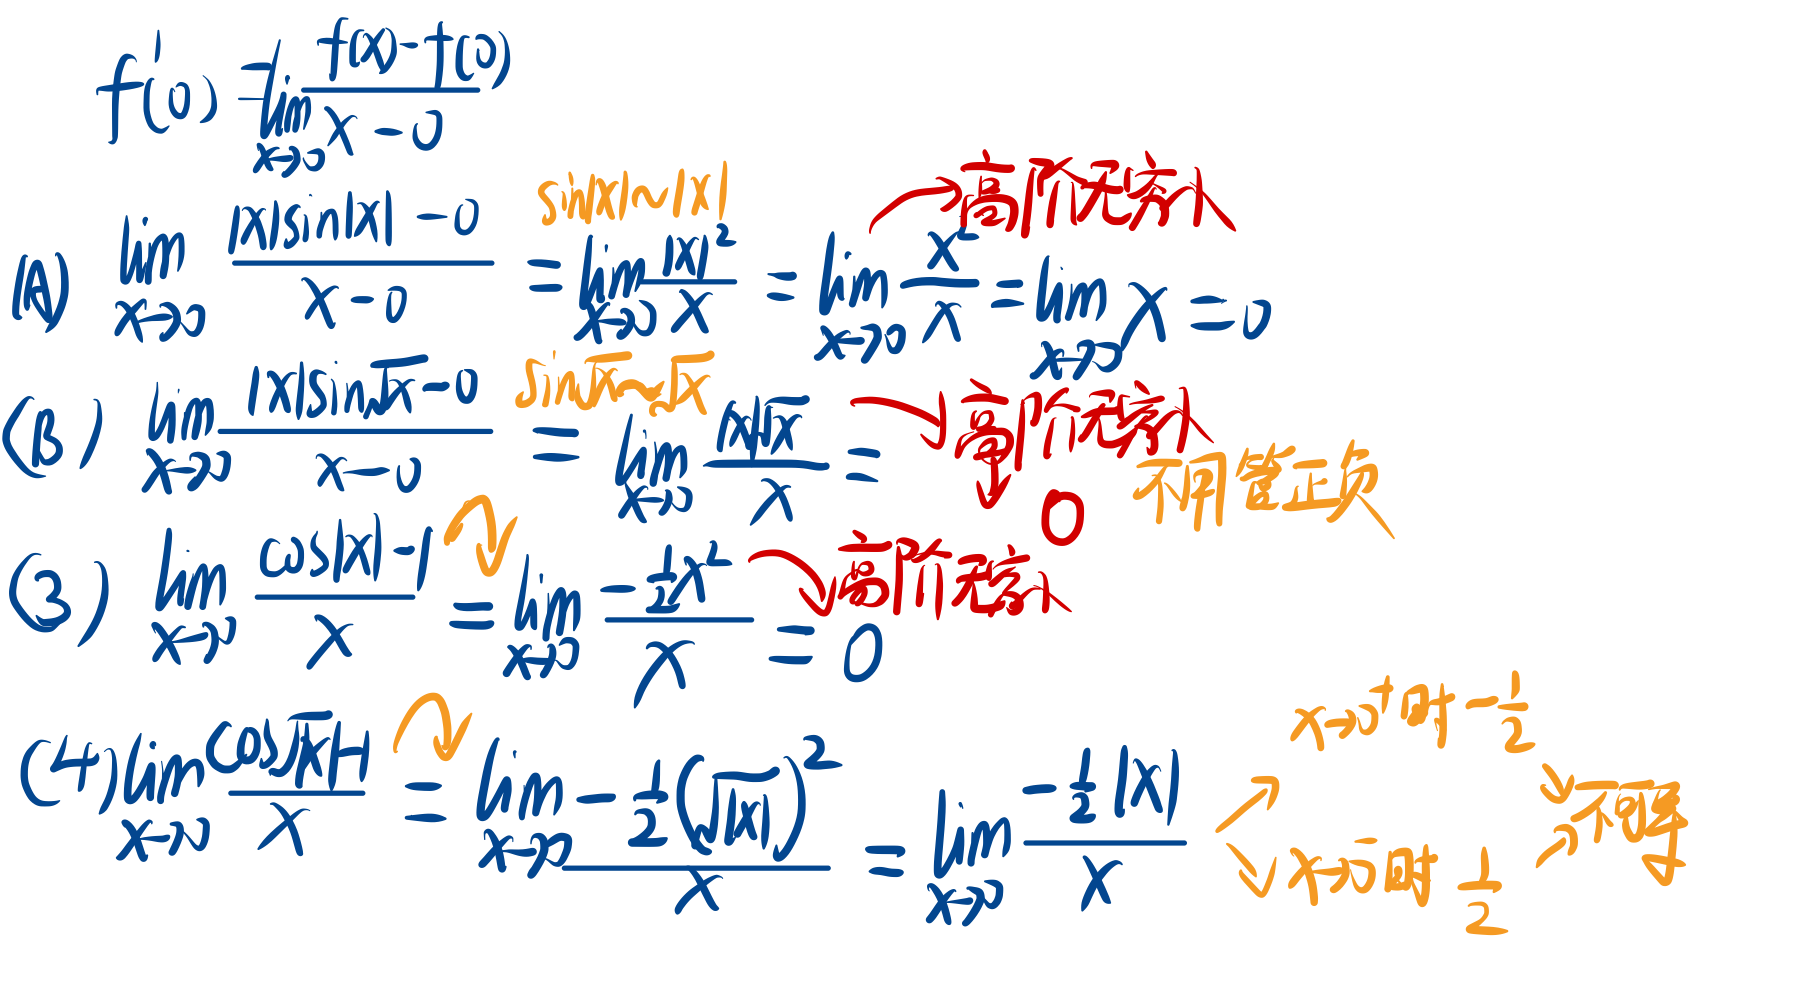 f'(0) = lim x→0 (f(x)-f(0))/(x-0)
sin|x|~|x|
高阶无穷小
(A) lim x→0 (|x|sin|x|-0)/(x-0) = lim x→0 |x|²/x = lim x→0 x²/x = lim x→0 x = 0
sin√x~√x
高阶无穷小
(B) lim x→0 (|x|sin√x-0)/(x-0) = lim x→0 |x|√x/x =
0
不用管正负
(3) lim x→0 (cos|x|-1)/x = lim x→0 (-½x²)/x = 0
高阶无穷小
(4) lim x→0 (cos√|x|-1)/x = lim x→0 (-½(√|x|)²)/x = lim x→0 (-½|x|)/x
x→0⁺时 -½
x→0⁻时 ½
不可导